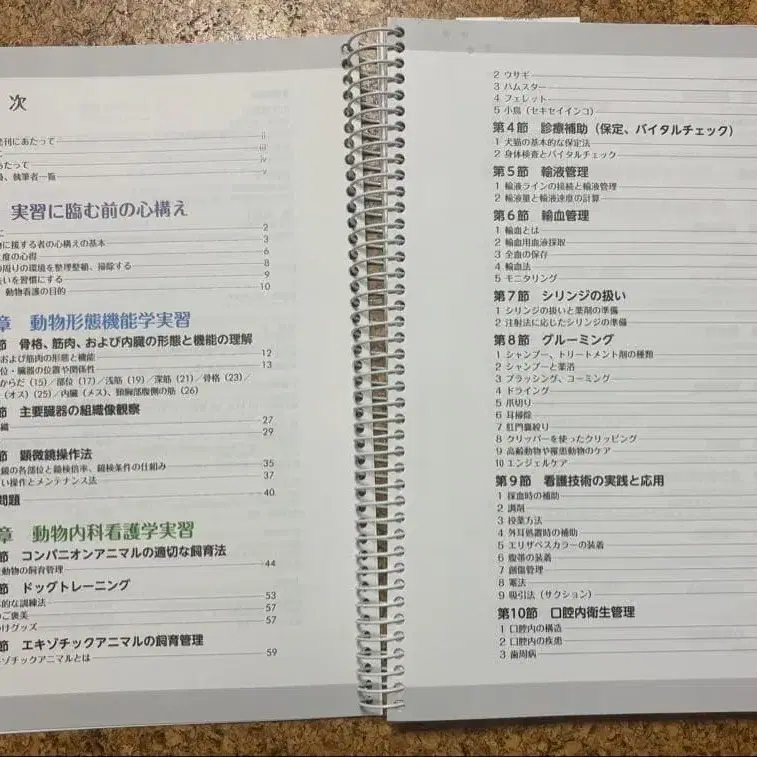 次
刊にあたって ii
iii
あたって iv
、執筆者一覧 v
実習に臨む前の心構え
2
に接する者の心構えの基本 3
度の心得 6
周りの環境を整理整頓、掃除する 8
いを習慣にする 9
動物看護の目的 10
章 動物形態機能学実習
節 骨格、筋肉、および内臓の形態と機能の理解
および筋肉の形態と機能 12
位・臓器の位置や関係性 13
からだ（15）／部位（17）／浅筋（19）／深筋（21）／骨格（23）／
（オス）（25）／内臓（メス）、頸胸部腹側の筋（26）
節 主要臓器の組織像観察
織 27
29
節 顕微鏡操作法
鏡の各部位と鏡検倍率、鏡検条件の仕組み 35
い操作とメンテナンス法 37
問題 40
章 動物内科看護学実習
節 コンパニオンアニマルの適切な飼育法
動物の飼育管理 44
節 ドッグトレーニング
的な訓練法 53
のご褒美 57
けグッズ 57
節 エキゾチックアニマルの飼育管理
ゾチックアニマルとは 59
2 ウサギ
3 ハムスター
4 フェレット
5 小鳥（セキセイインコ）
第4節 診療補助（保定、バイタルチェック）
1 犬猫の基本的な保定法
2 身体検査とバイタルチェック
第5節 輸液管理
1 輸液ラインの接続と輸液管理
2 輸液量と輸液速度の計算
第6節 輸血管理
1 輸血とは
2 輸血用血液採取
3 全血の保存
4 輸血法
5 モニタリング
第7節 シリンジの扱い
1 シリンジの扱いと薬剤の準備
2 注射法に応じたシリンジの準備
第8節 グルーミング
1 シャンプー、トリートメント剤の種類
2 シャンプーと薬浴
3 ブラッシング、コーミング
4 ドライング
5 爪切り
6 耳掃除
7 肛門嚢絞り
8 クリッパーを使ったクリッピング
9 高齢動物や罹患動物のケア
10 エンジェルケア
第9節 看護技術の実践と応用
1 採血時の補助
2 調剤
3 投薬方法
4 外耳処置時の補助
5 エリザベスカラーの装着
6 腹帯の装着
7 創傷管理
8 罨法
9 吸引法（サクション）
第10節 口腔内衛生管理
1 口腔内の構造
2 口腔内の疾患
3 歯周病